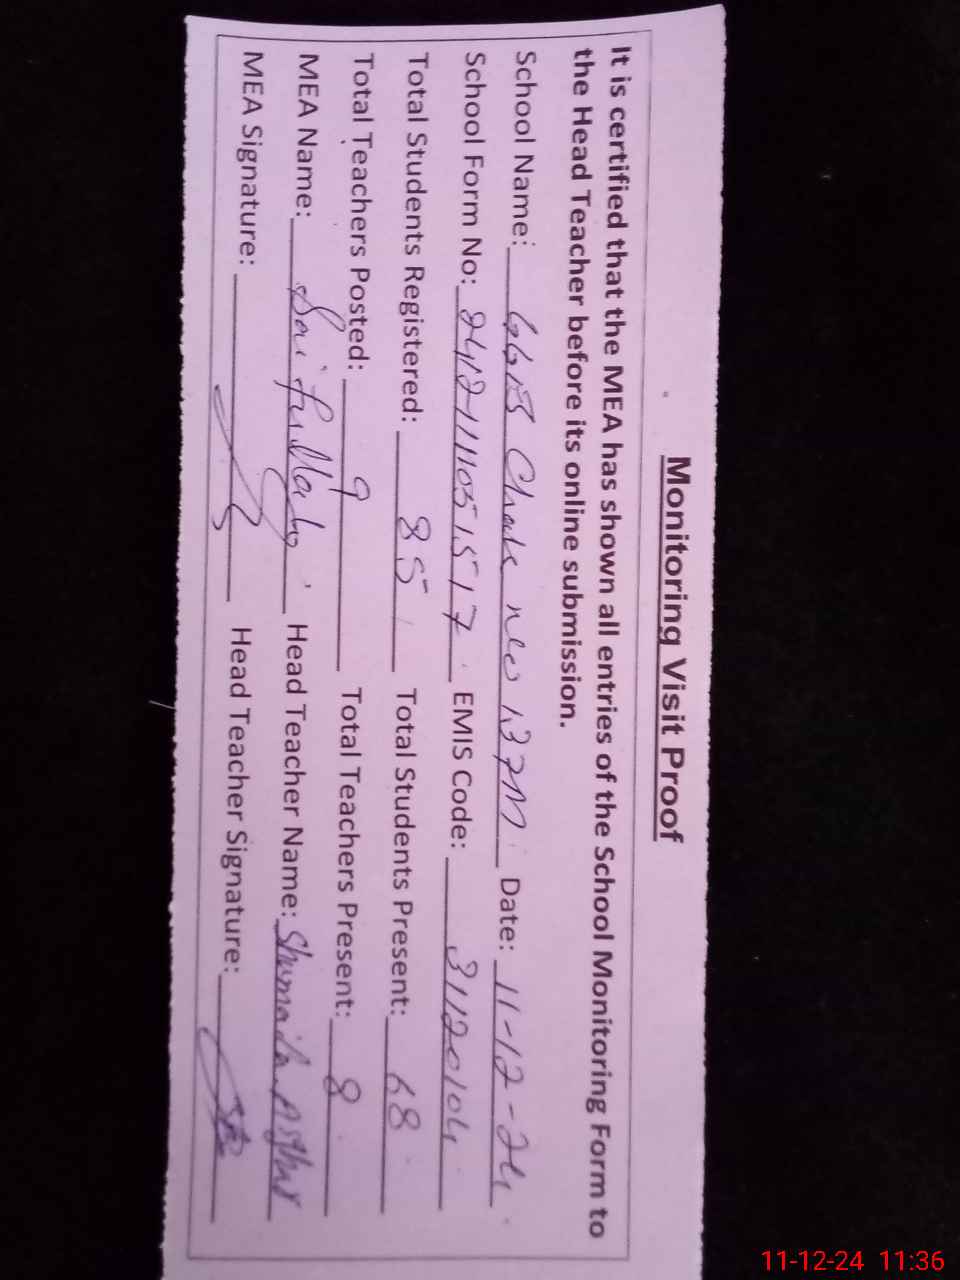 Monitoring Visit Proof
It is certified that the MEA has shown all entries of the School Monitoring Form to
the Head Teacher before its online submission.
School Name: Chak no 137M Date: 11-12-24
School Form No: EMIS Code: 31120104
Total Students Registered: 85 Total Students Present: 68
Total Teachers Posted: 9 Total Teachers Present: 8
MEA Name: Saifullah Head Teacher Name: Shumaila Asghar
MEA Signature: Head Teacher Signature:
11-12-24 11:36